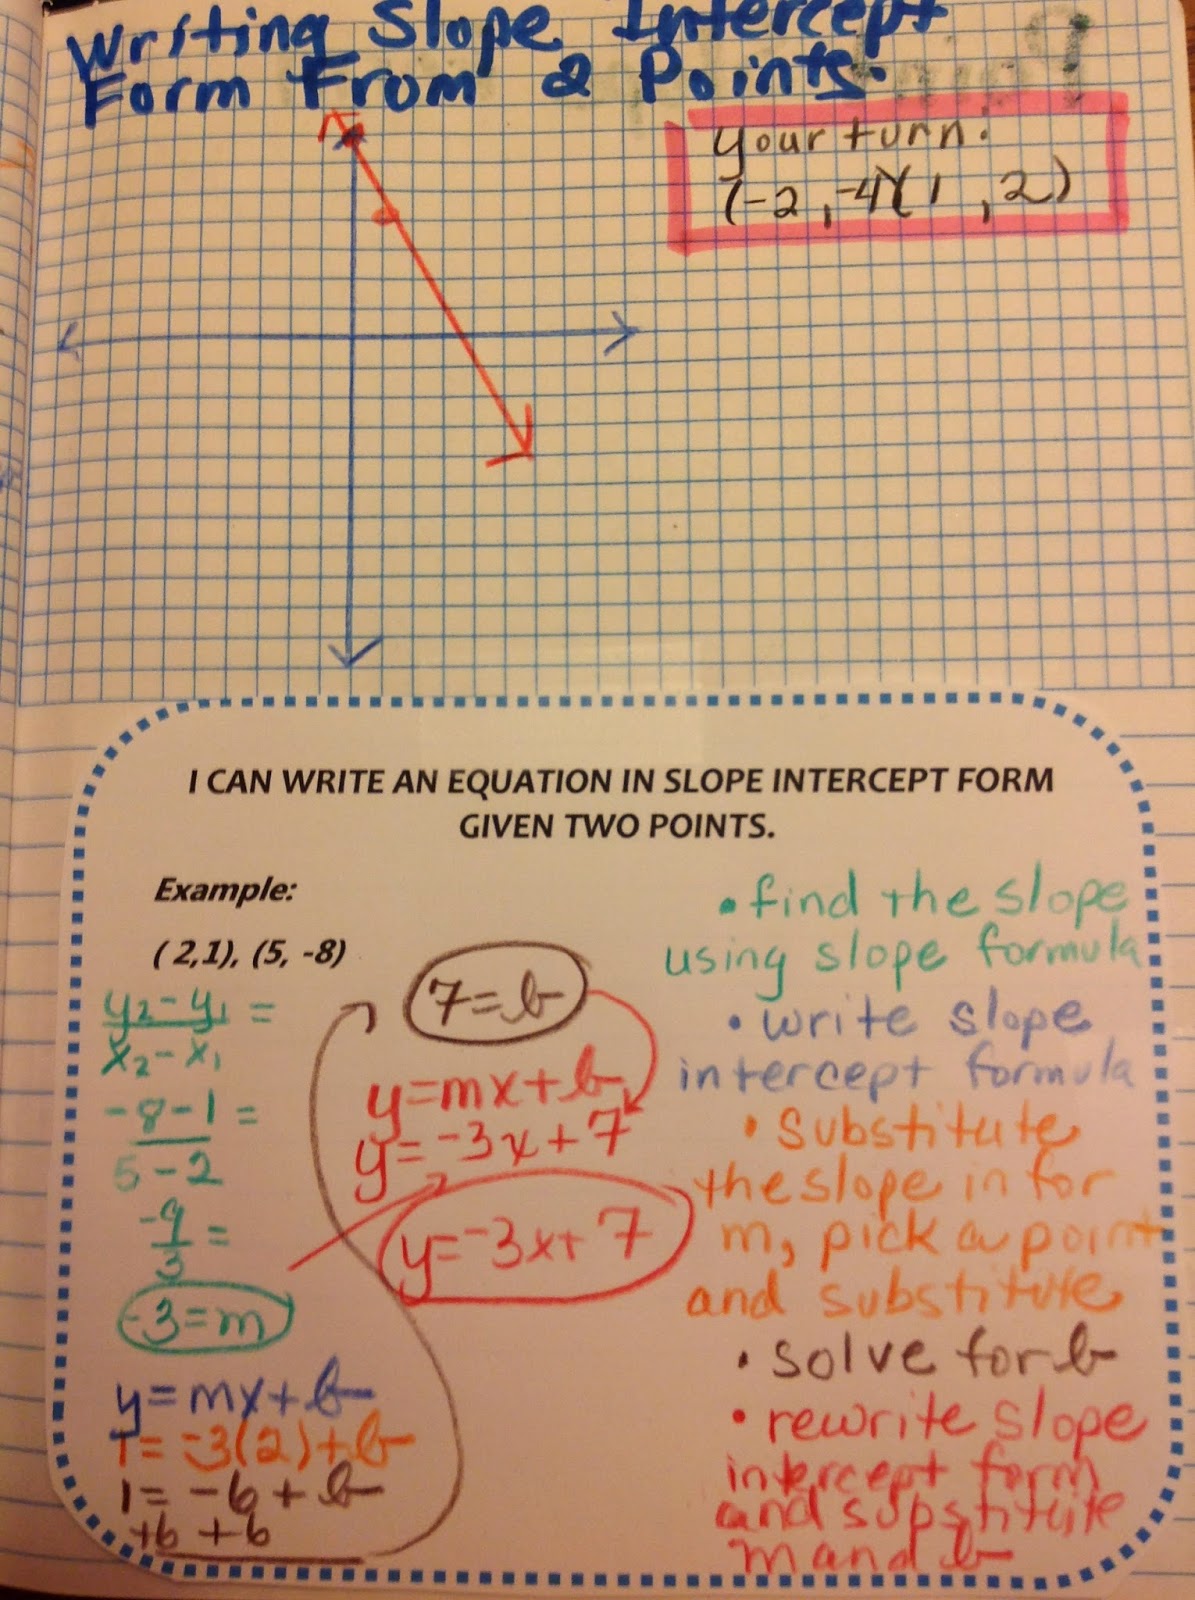 Writing Slope Intercept
Form From 2 Points.
your turn:
(-2, -4)(1, 2)
I CAN WRITE AN EQUATION IN SLOPE INTERCEPT FORM
GIVEN TWO POINTS.
Example:
( 2,1), (5, -8)
y₂-y₁ =
x₂-x₁
-8-1 =
5-2
-9 =
3
-3=m
y=mx+b
1=-3(2)+b
1=-6+b
+6 +6
7=b
y=mx+b
y=-3x+7
y=-3x+7
• find the slope
using slope formula
• write slope
intercept formula
• substitute
the slope in for
m, pick a point
and substitute
• solve for b
• rewrite slope
intercept form
and substitute
m and b